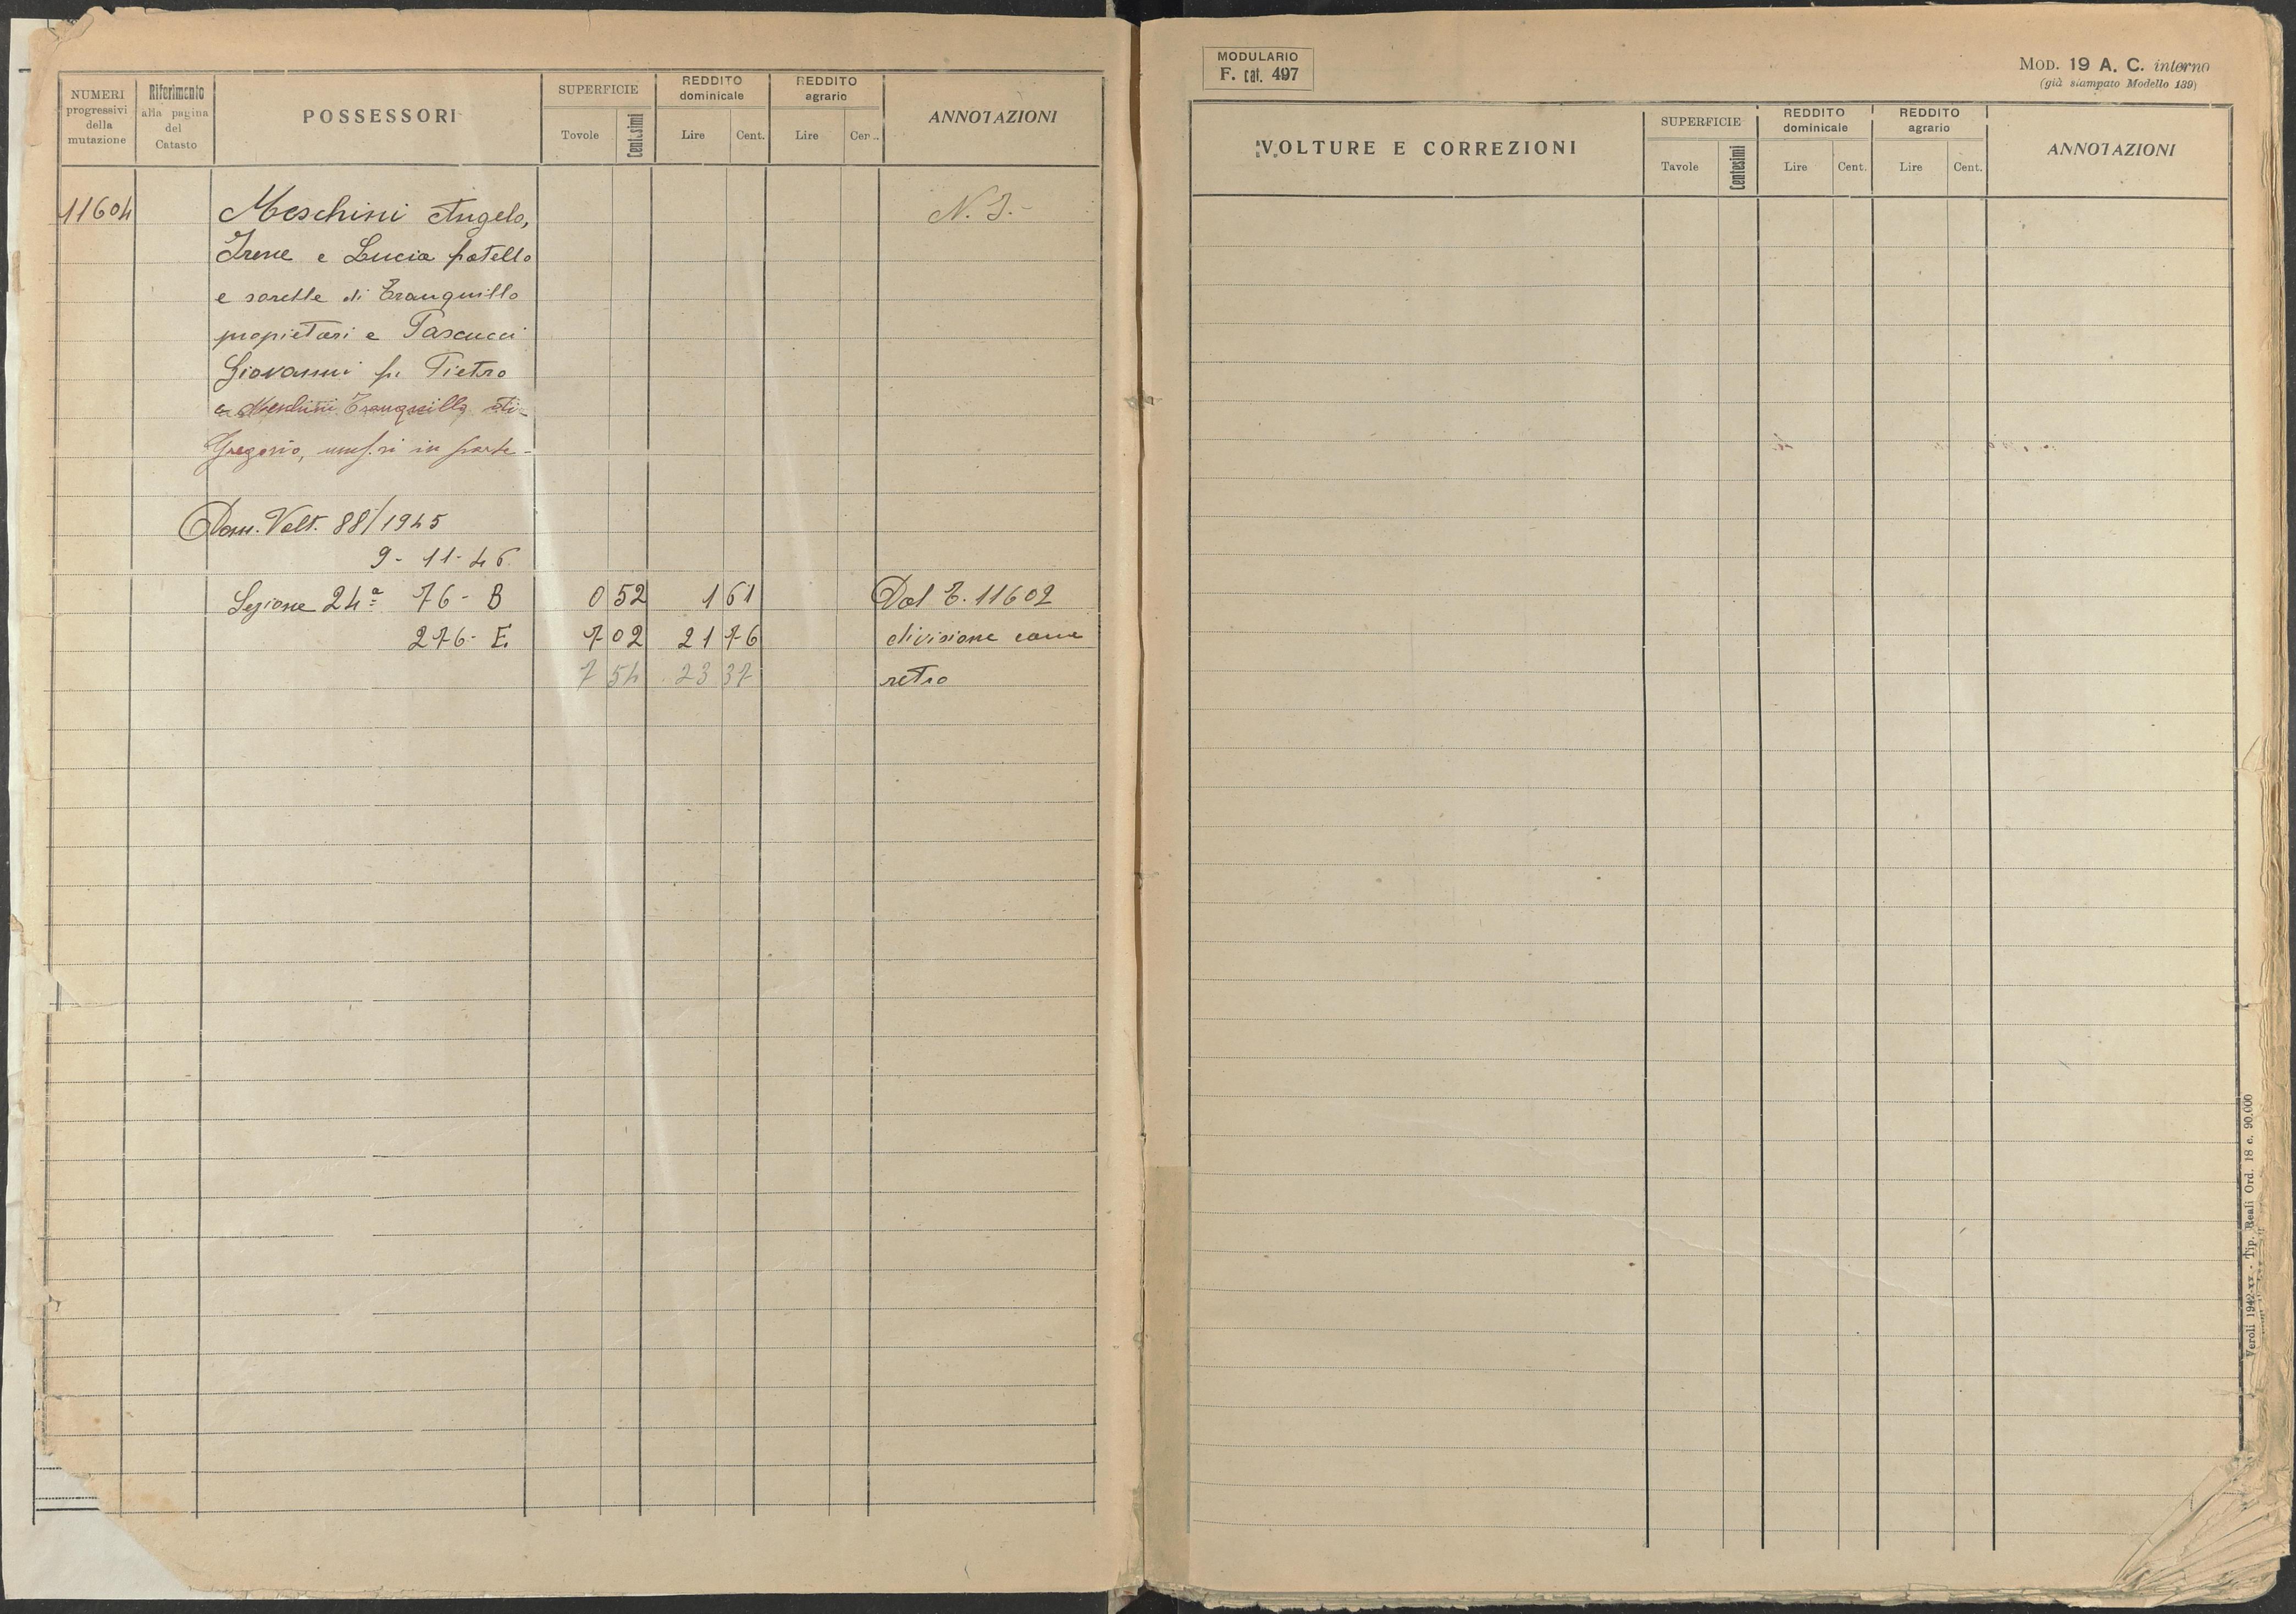 NUMERI progressivi della mutazione
Riferimento alla pagina del Catasto
POSSESSORI
SUPERFICIE
Tovole
Centesimi
REDDITO dominicale
Lire
Cent.
REDDITO agrario
Lire
Cen..
ANNOTAZIONI
11604
Meschini Angelo,
N. I.-
Irene e Lucia fratello
e sorelle di Tranquillo
propietari e Pascucci
Giovanni fu Pietro
e Meschini Tranquillo di
Gregorio, usuf.ri in parte-
Dom. Volt. 88/1945
9-11-46
Sezione 24ª 76-B 0 52 1 61 Dal T. 11602
276-E. 7 02 21 76 divisione come
7 54 23 37 retro
MODULARIO
F. cat. 497
MOD. 19 A. C. interno
(già stampato Modello 139)
VOLTURE E CORREZIONI
SUPERFICIE
Tavole
Centesimi
REDDITO dominicale
Lire
Cent.
REDDITO agrario
Lire
Cent.
ANNOTAZIONI
Veroli 1942-xx - Tip. Reali Ord. 18 c. 90.000